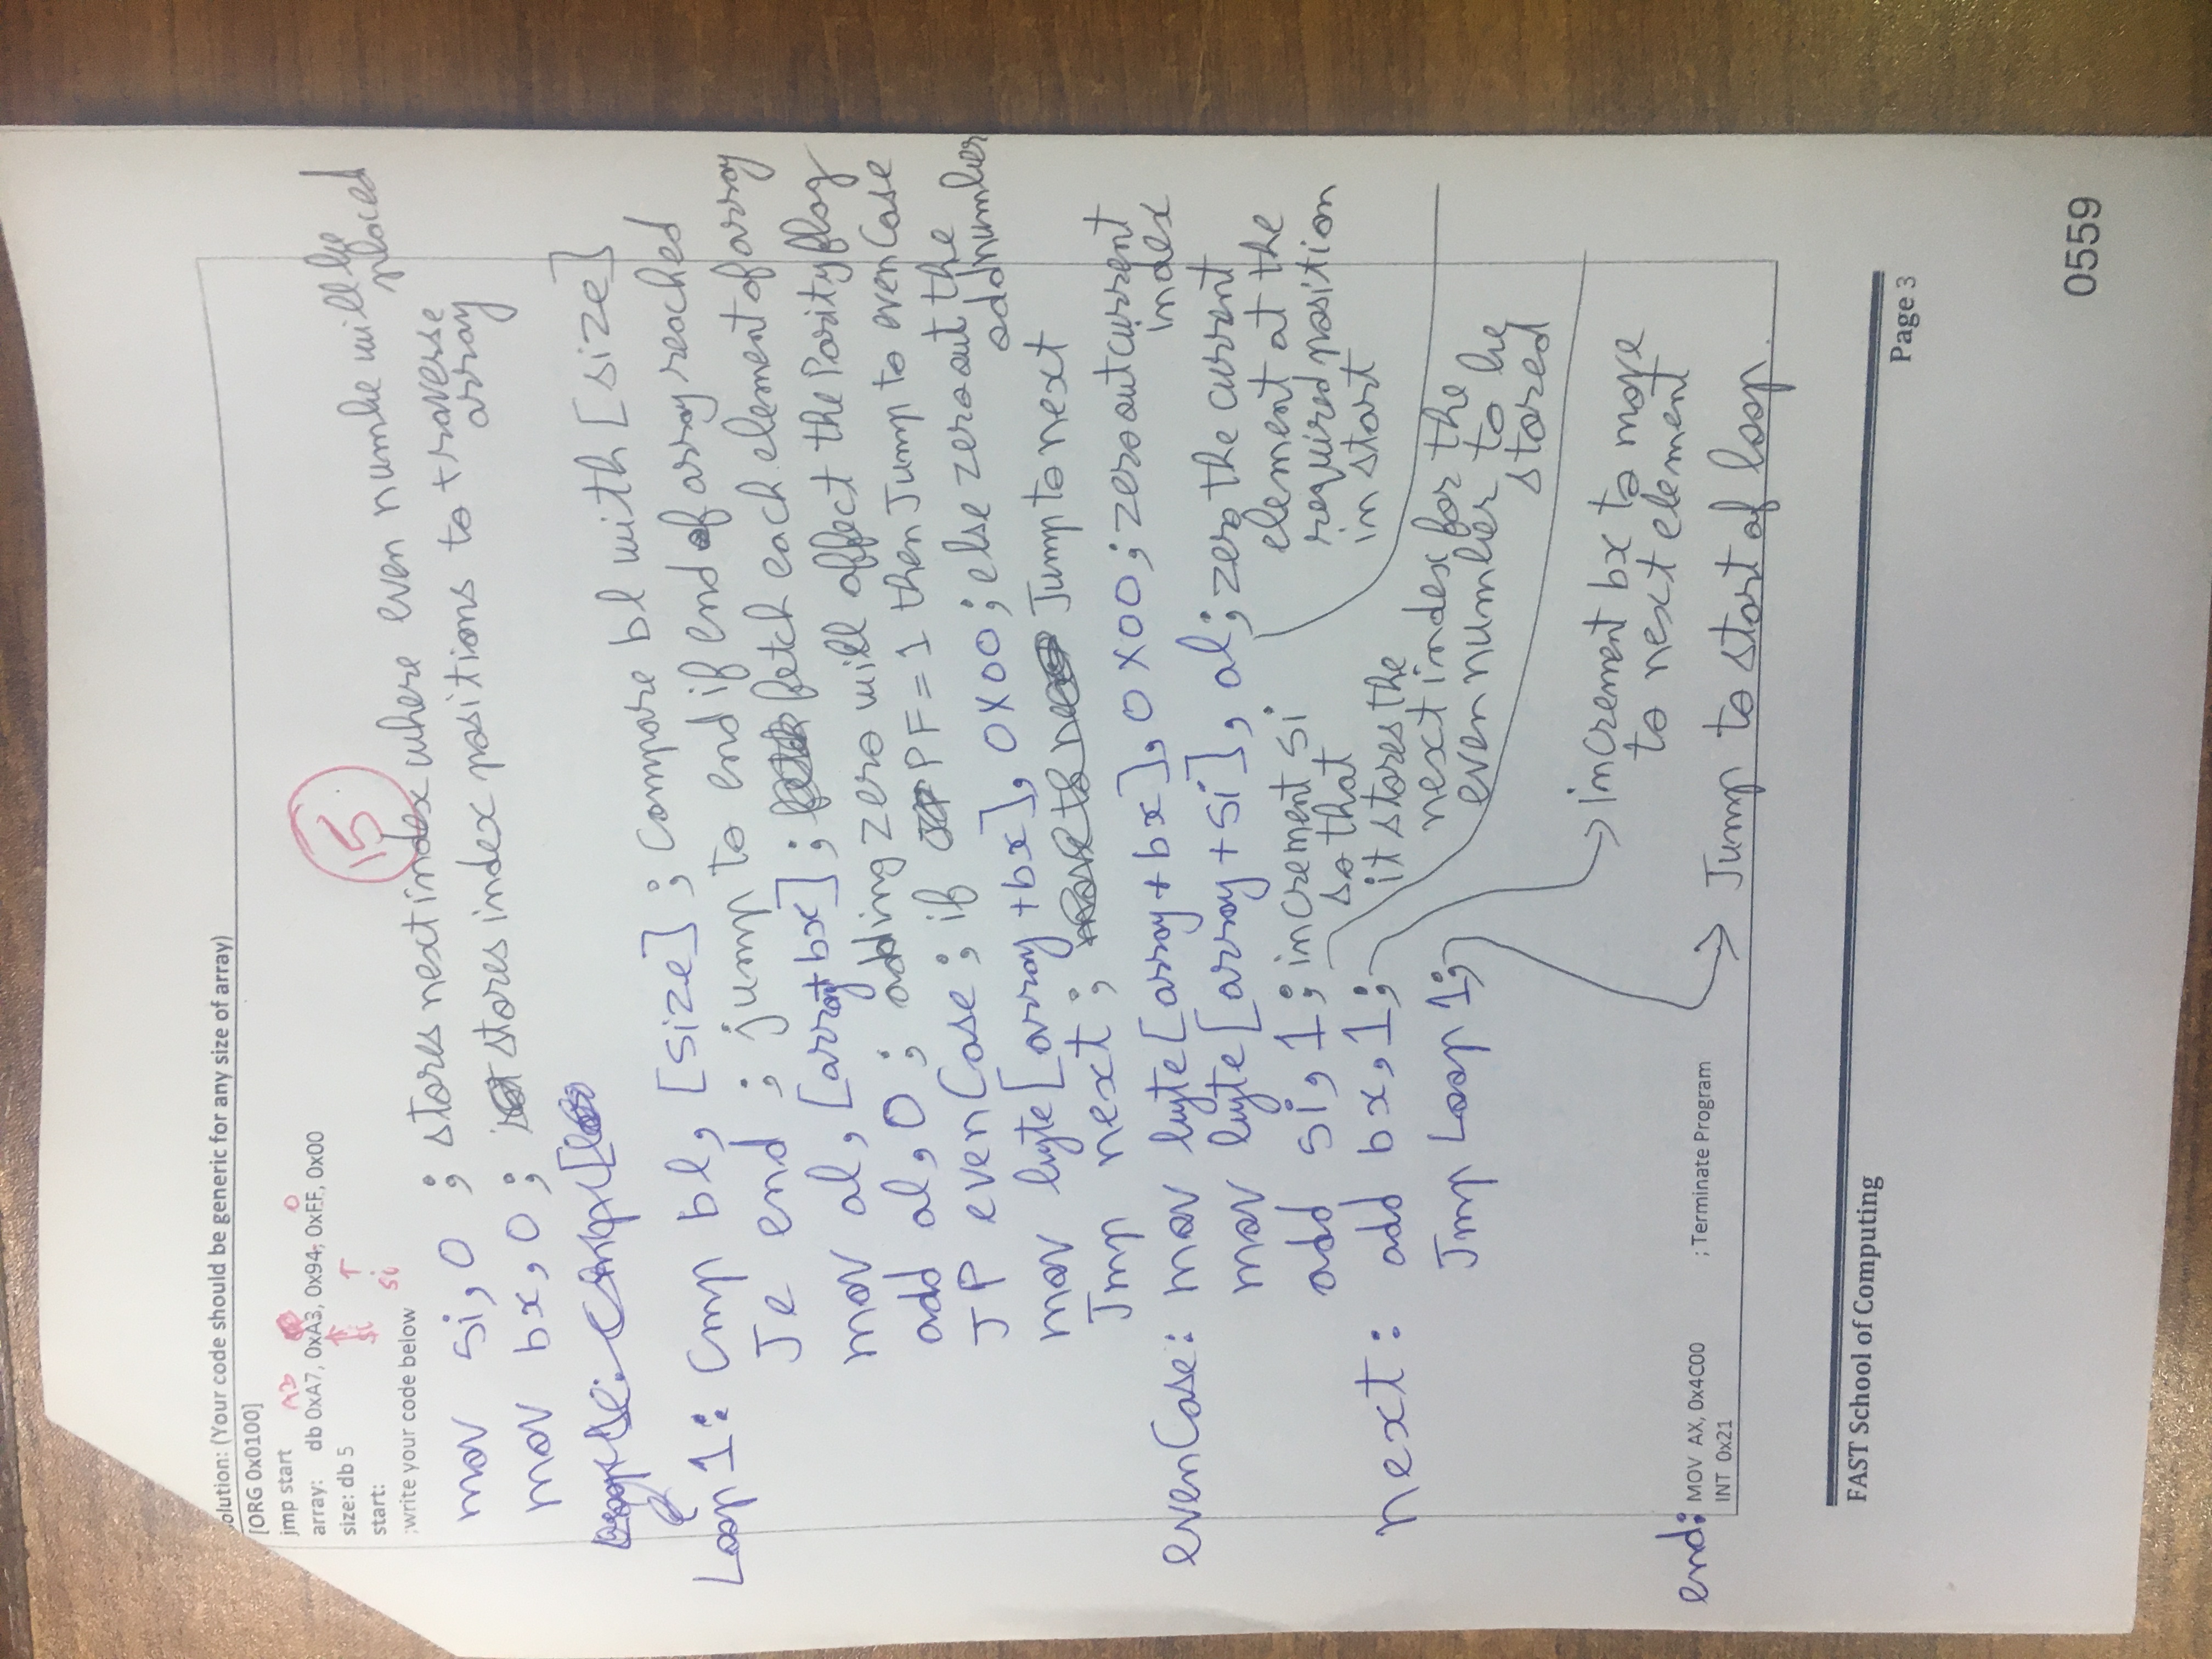 olution: (Your code should be generic for any size of array)
[ORG 0x0100]
jmp start
A3 0
array: db 0xA7, 0xA3, 0x94, 0xFF, 0x00
size: db 5
si
si
start:
15
;write your code below
mov si, 0 ; stores next index where even numbe will be placed
mov bx, 0 ; stores index positions to traverse array
Loop1: Cmp bl, [size] ; Compare bl with [size]
Je end ; jump to end if end of array reached
mov al, [array+bx] ; fetch each element of array
add al, 0 ; adding zero will affect the Parity flag
JP evenCase ; if PF = 1 then Jump to evenCase
mov byte[array+bx], 0X00 ; else zero out the oddnumber
Jmp next ; Jump to next
evenCase: mov byte[array+bx], 0X00 ; zero out current index
mov byte[array+si], al ; zero the current element at the required position in start
add si, 1 ; increment si so that it stores the next index for the even number to be stored
next: add bx, 1 ;
Jmp Loop1 ;
increment bx to move
to next element
end: MOV AX, 0x4C00 ; Terminate Program
INT 0x21
Jump to start of loop.
FAST School of Computing
Page 3
0559